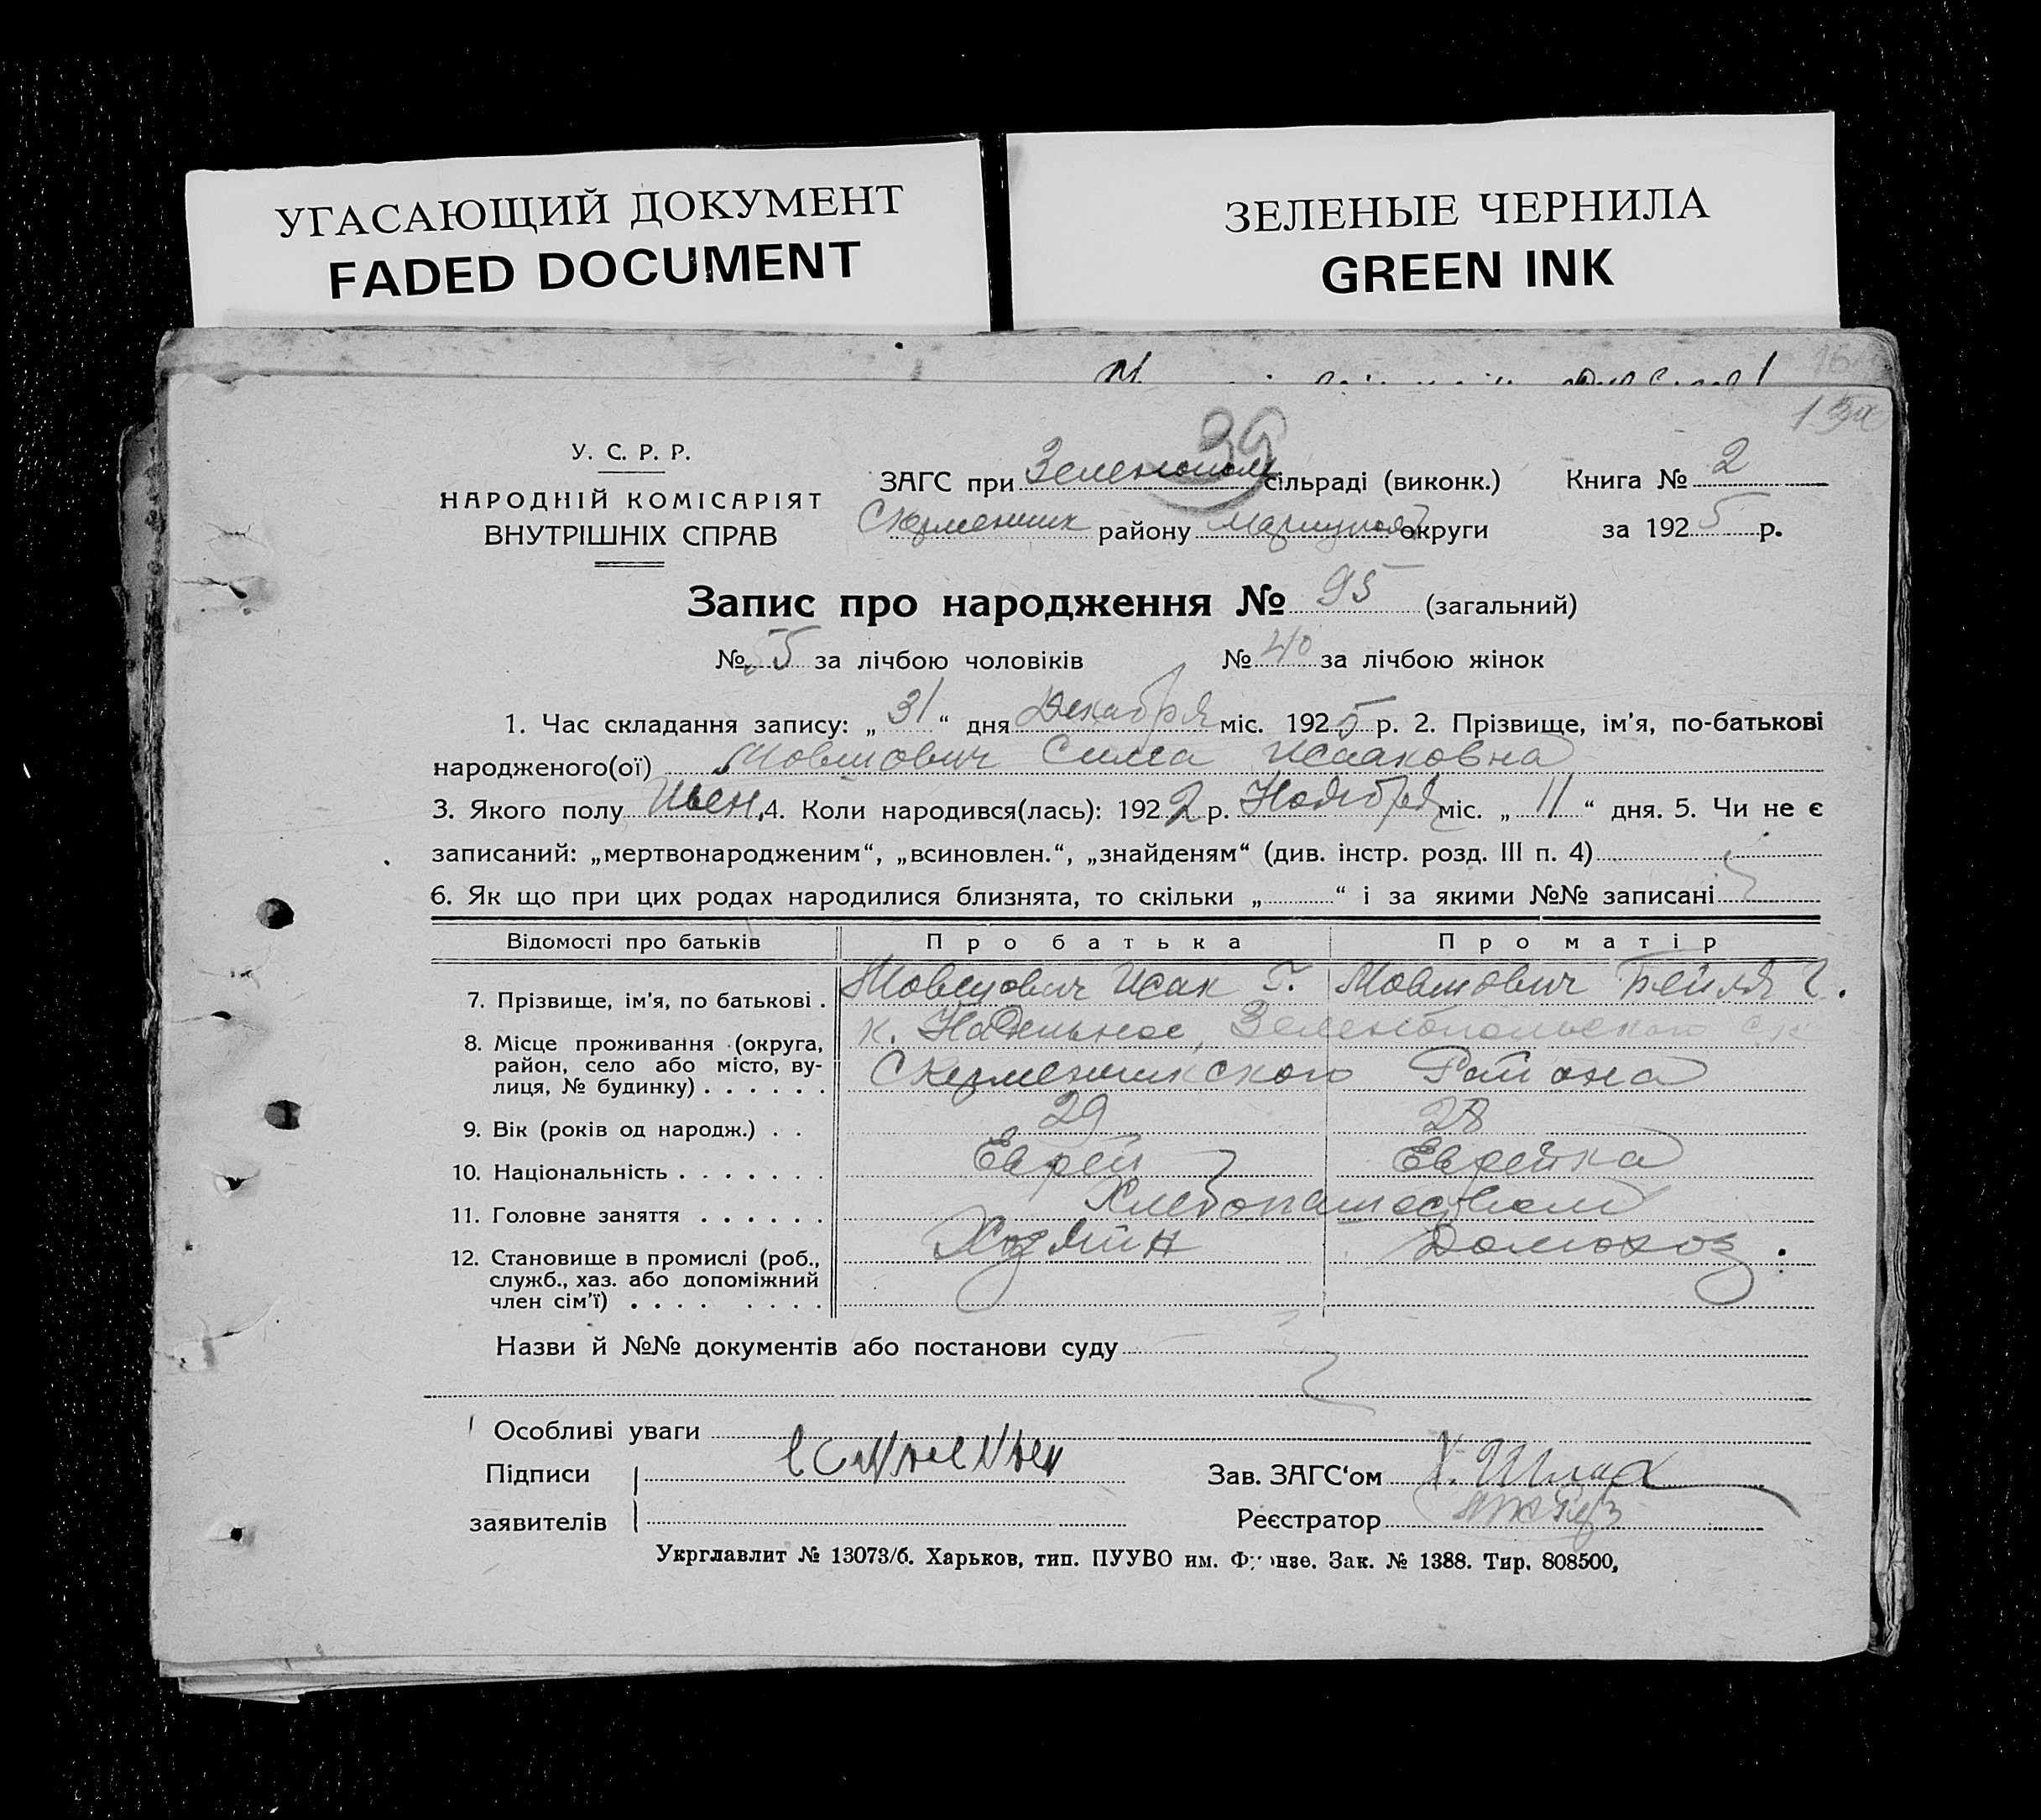 УГАСАЮЩИЙ ДОКУМЕНТ
FADED DOCUMENT
ЗЕЛЕНЫЕ ЧЕРНИЛА
GREEN INK
39
У. С. Р. Р.
НАРОДНІЙ КОМІСАРІЯТ
ВНУТРІШНІХ СПРАВ
ЗАГС при Зеленопол сільраді (виконк.) Книга № 2
району Мариупол округи за 1925 р.
Запис про народження № 95 (загальний)
№ 55 за лічбою чоловіків № 40 за лічбою жінок
1. Час складання запису: „31“ дня Декабря міс. 1925 р. 2. Прізвище, ім’я, по-батькові
народженого(ої) Мовшович Сима Исааковна
3. Якого полу Жен. 4. Коли народився(лась): 1922 р. Ноября міс. „11“ дня. 5. Чи не є
записаний: „мертвонародженим“, „всиновлен.“, „знайденям“ (див. інстр. розд. III п. 4)
6. Як що при цих родах народилися близнята, то скільки „ “ і за якими №№ записані
Відомості про батьків Про батька Про матір
7. Прізвище, ім’я, по батькові . Мовшович Исак Г. Мовшович Бейля Г.
8. Місце проживання (округа, район, село або місто, вулиця, № будинку) . . . . . . к. Надельное, Зеленопольского с/с
Района
9. Вік (років од народж.) . . 29 28
10. Національність . . . . . . . Еврей Еврейка
11. Головне заняття . . . . . . Хлебопашеством
12. Становище в промислі (роб., служб., хаз. або допоміжний член сім’ї) . . . . . . . . Хозяин Домохоз.
Назви й №№ документів або постанови суду
Особливі уваги
Підписи
заявителів
Зав. ЗАГС‘ом
Реєстратор
Укрглавлит № 13073/б. Харьков, тип. ПУУВО им. Фрунзе. Зак. № 1388. Тир. 808500,